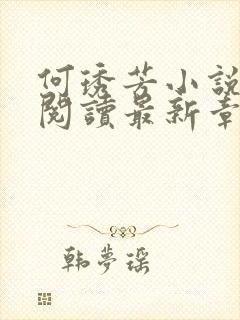 何琇芳小說
閱讀最新章
韩夢瑶